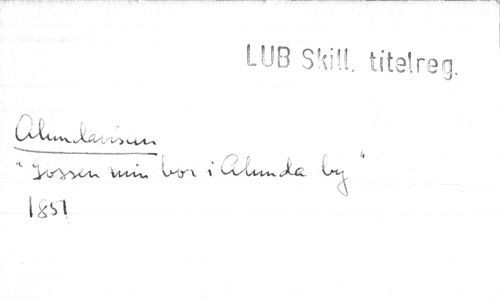 LUB Skill. titelreg.
Alundavisan
"Gossen min bor i Alunda by"
1851